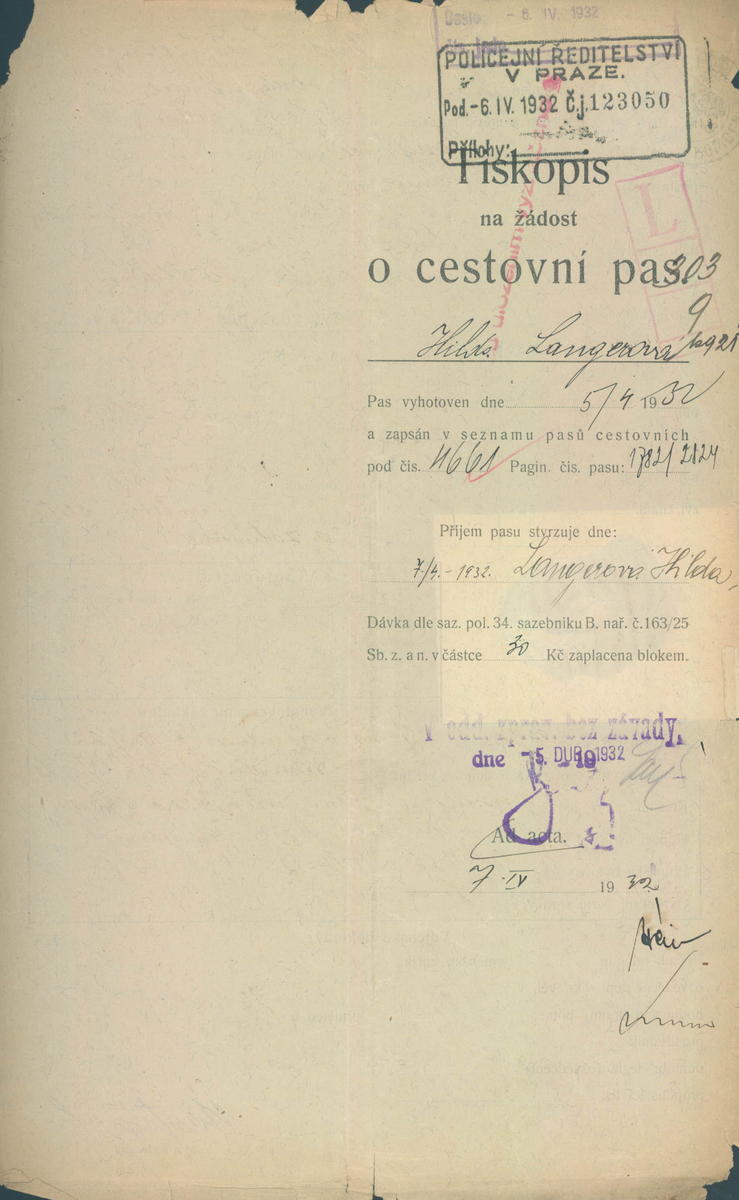 - 6. IV. 1932
POLICEJNÍ ŘEDITELSTVÍ
V PRAZE.
Pod. -6. IV. 1932 Č.j. 123050
Přílohy:
Tiskopis
na žádost
o cestovní pas.
303
9
Hilda Langerová
Pas vyhotoven dne 5/4 1932
a zapsán v seznamu pasů cestovních
pod čís. 4661 Pagin. čís. pasu: 1782/2124
Příjem pasu stvrzuje dne:
7/4.-1932. Langerová Hilda,
Dávka dle saz. pol. 34. sazebníku B. nař. č. 163/25
Sb. z. a n. v částce 30 Kč zaplacena blokem.
V odd. zprav. bez závady,
dne -5. DUB. 1932
Ad acta.
7. IV 1932